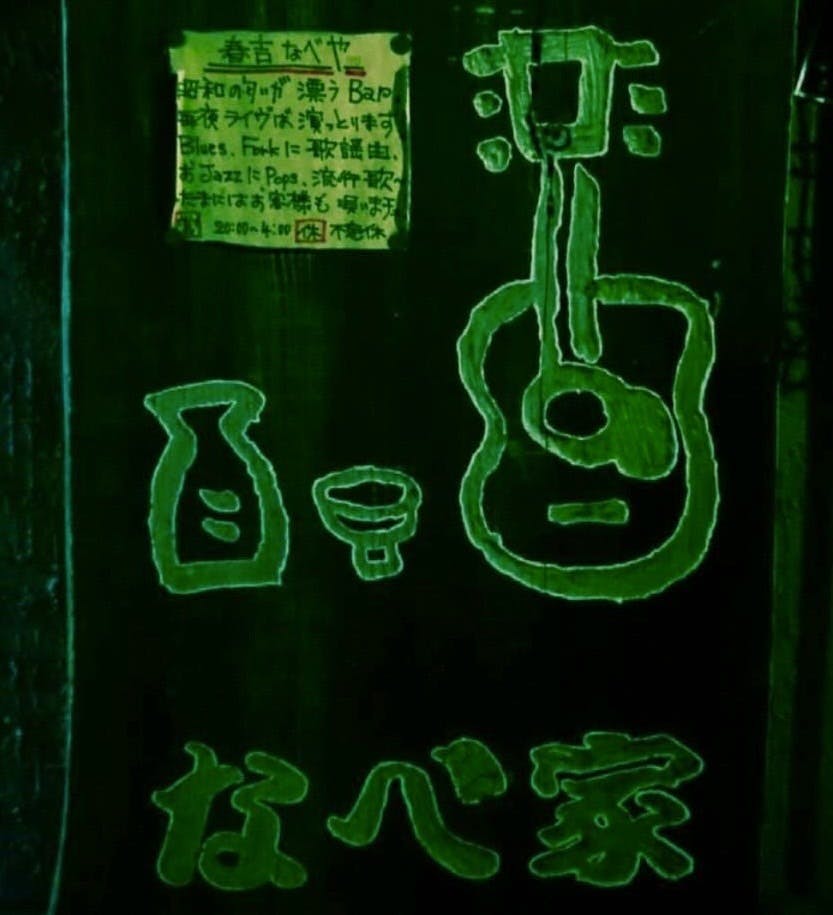 春吉なべや
昭和の匂いが漂うBar
毎夜ライヴば演っとります
Blues、Forkに歌謡曲、
おJazzにPops、流行歌〜
たまにはお客様も唄いますか
20:00〜4:00 休 不定休
なべ家